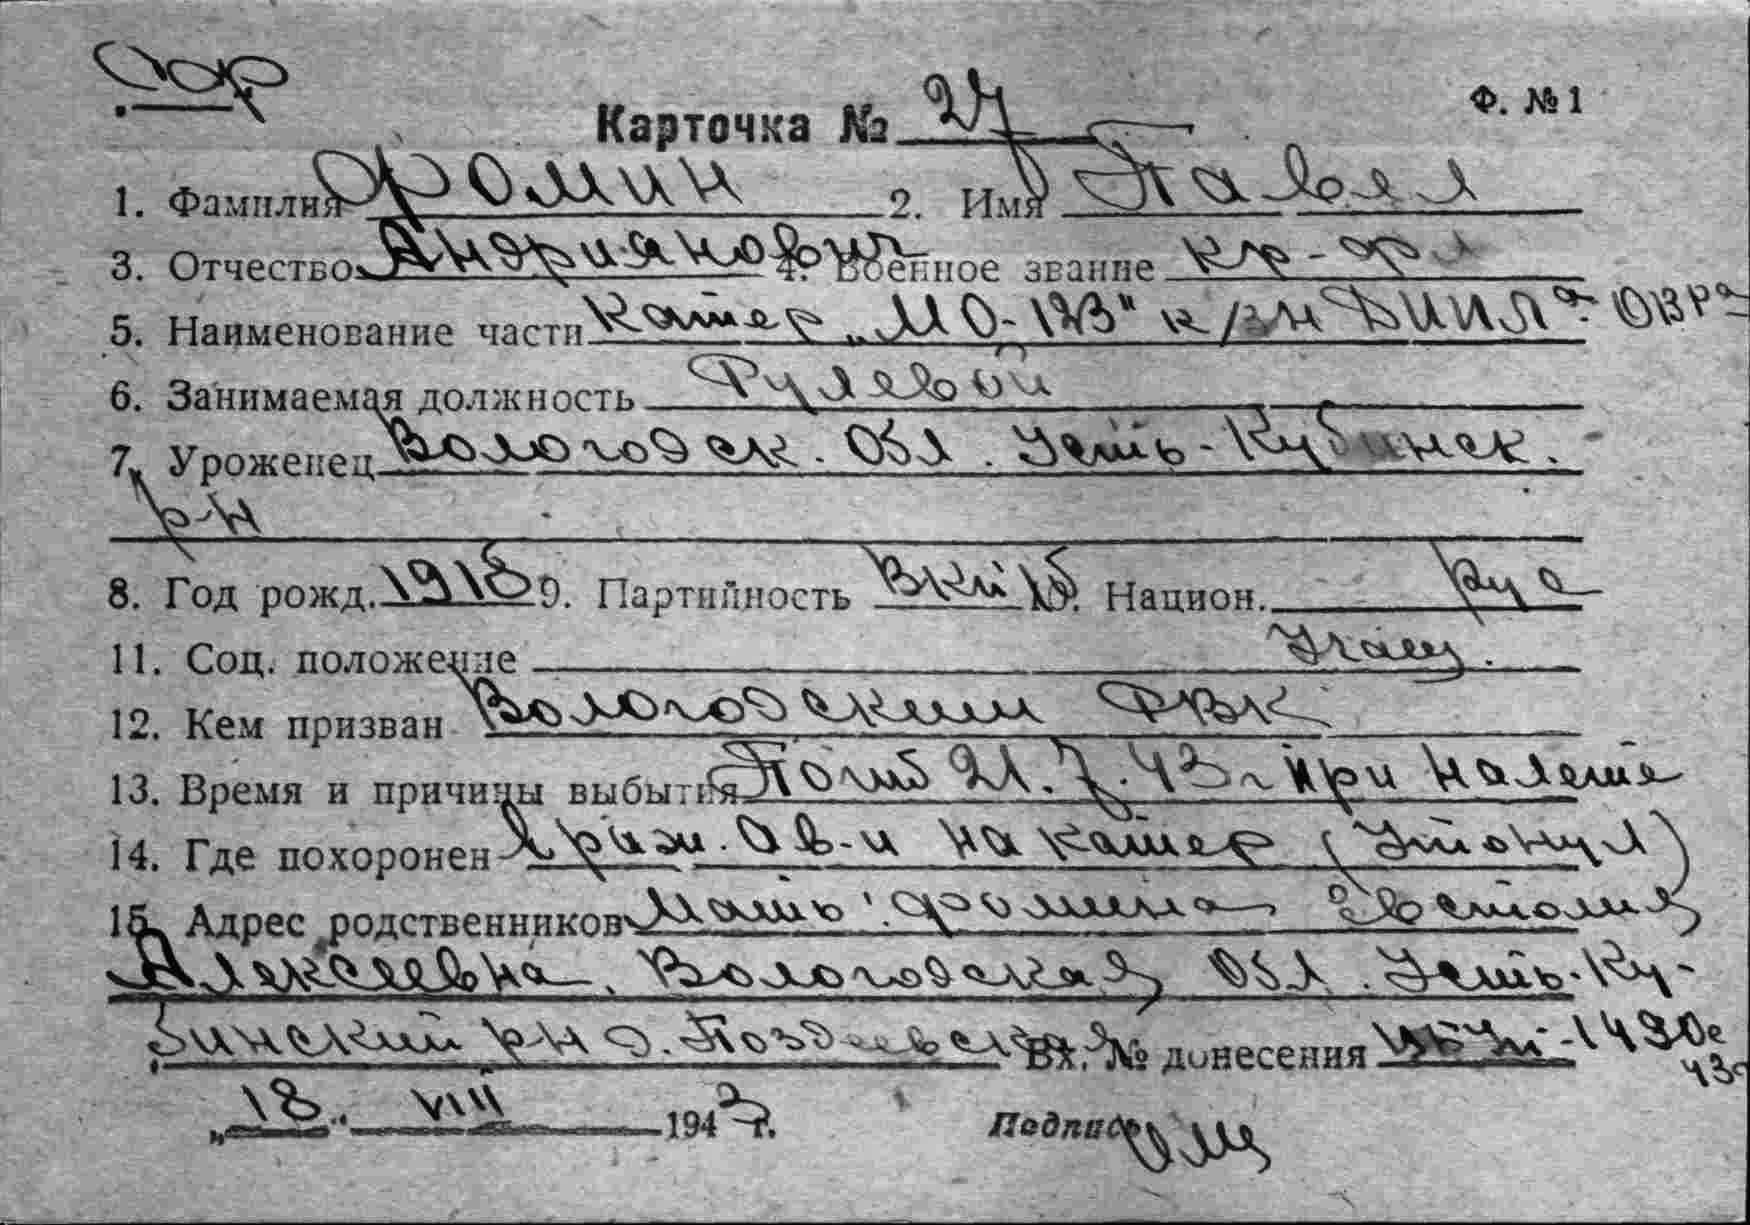 Ф. № 1
Карточка № 27
1. Фамилия Фомин 2. Имя Павел
3. Отчество Андрианович 4. Военное звание кр-фл
5. Наименование части Катер „МО-123" ОВРа
6. Занимаемая должность Рулевой
7. Уроженец Вологодск. Обл. Усть-Кубинск.
р-н
8. Год рожд. 1918 9. Партийность 10. Национ. рус
11. Соц. положение Учащ.
12. Кем призван Вологодским РВК
13. Время и причины выбытия Погиб 21.7.43г при налете
14. Где похоронен враж. ав-и на катер (Утонул)
15. Адрес родственников Мать: Фомина Евстолия
Алексеевна. Вологодская Обл. Усть-Ку-
бинский р-н д. Поздеевская Вх. № донесения 1490с
43г
„18" VIII 1943 г. Подпись